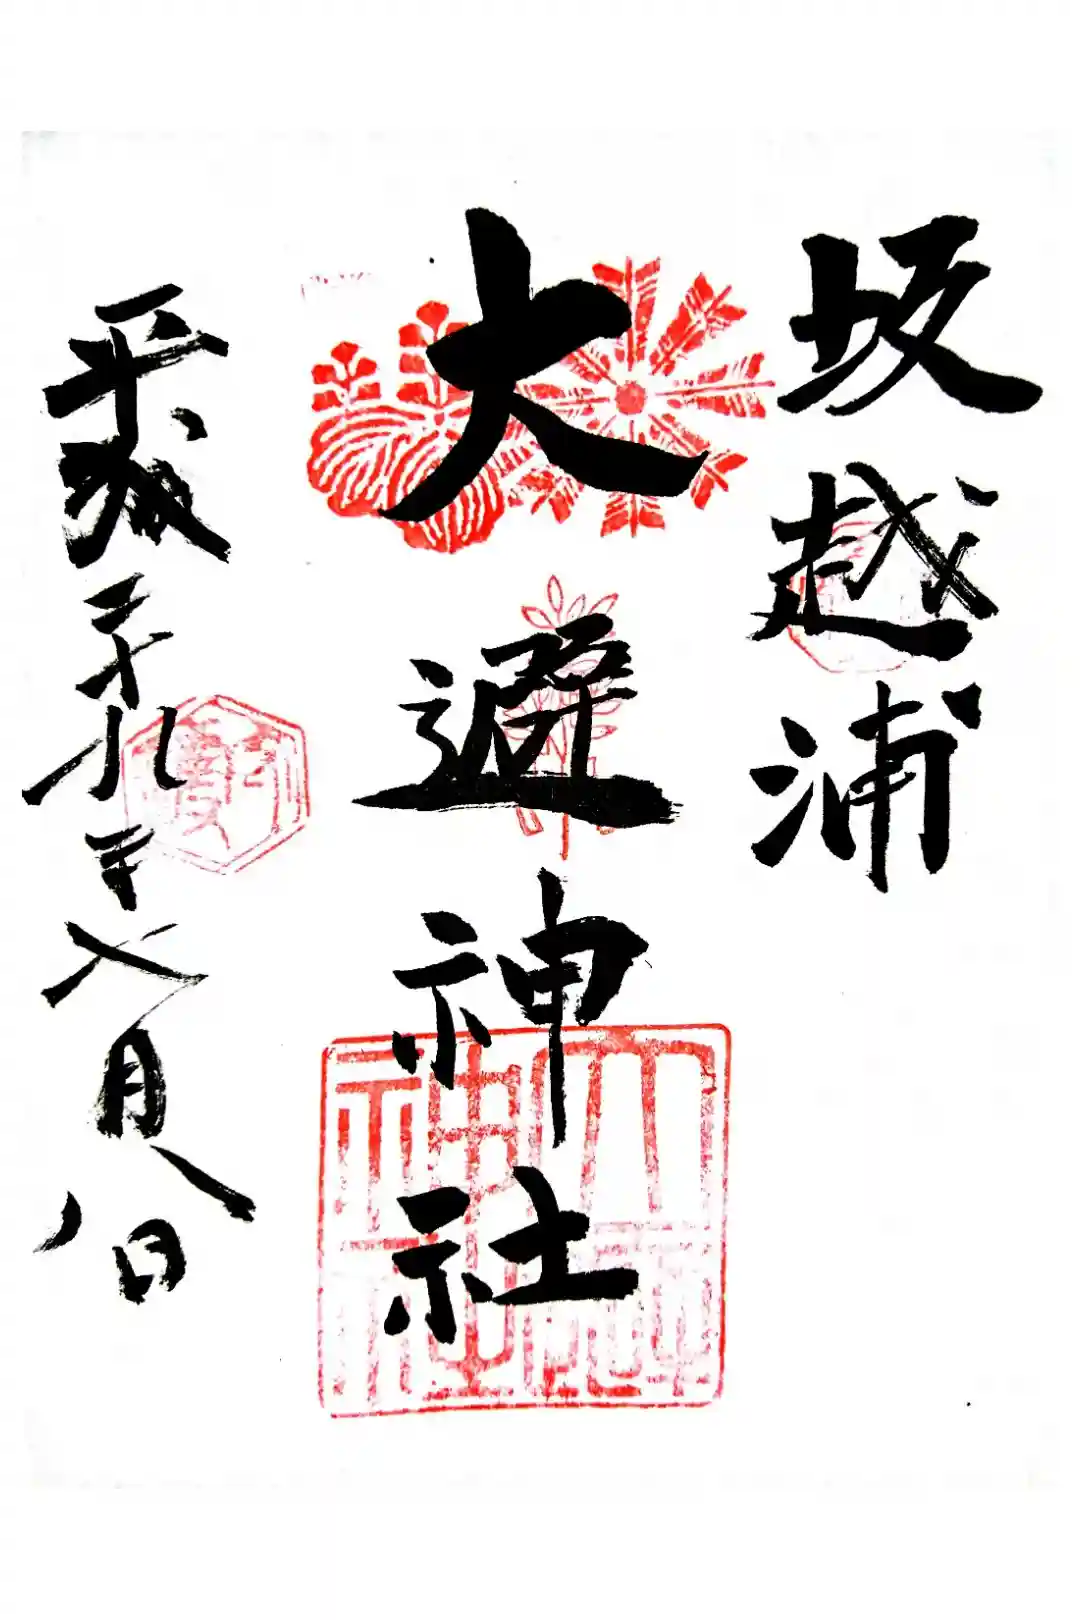 坂越浦
大避神社
平成二十九年八月八日
大避神社